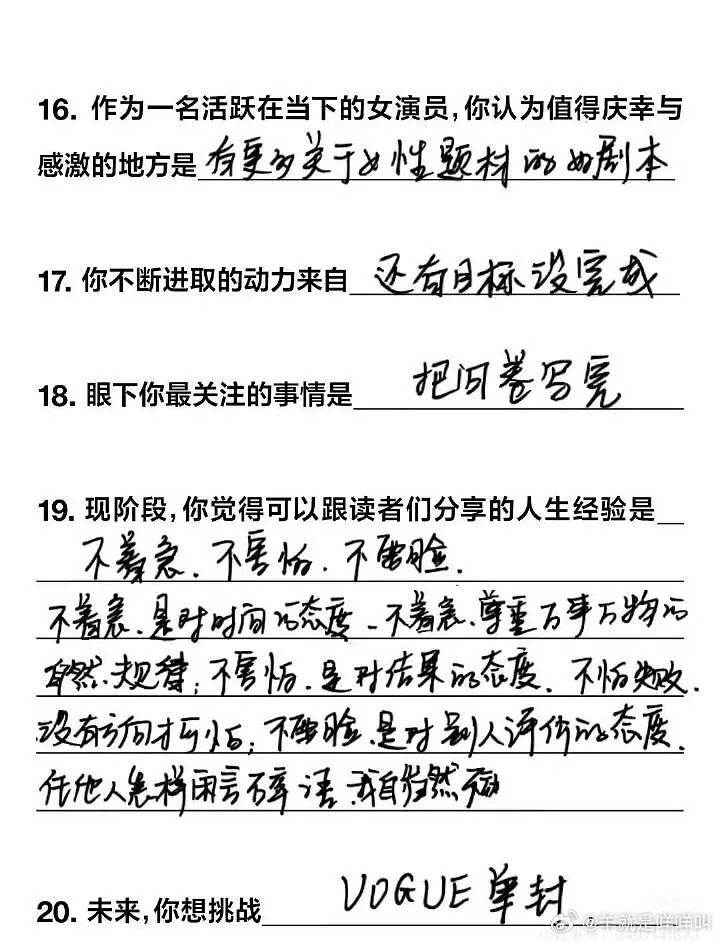 16. 作为一名活跃在当下的女演员,你认为值得庆幸与
感激的地方是 有更多关于女性题材的好剧本
17. 你不断进取的动力来自 还有目标没完成
18. 眼下你最关注的事情是 把问卷写完
19. 现阶段,你觉得可以跟读者们分享的人生经验是
不着急、不害怕、不要脸.
不着急、是对时间的态度、不着急、尊重万事万物的
自然规律;不害怕、是对结果的态度、不怕失败、
没有方向才可怕;不要脸、是对别人评价的态度、
任他人怎样闲言碎语、我自岿然不动
20. 未来,你想挑战 VOGUE 单封
@羊就是咩咩叫